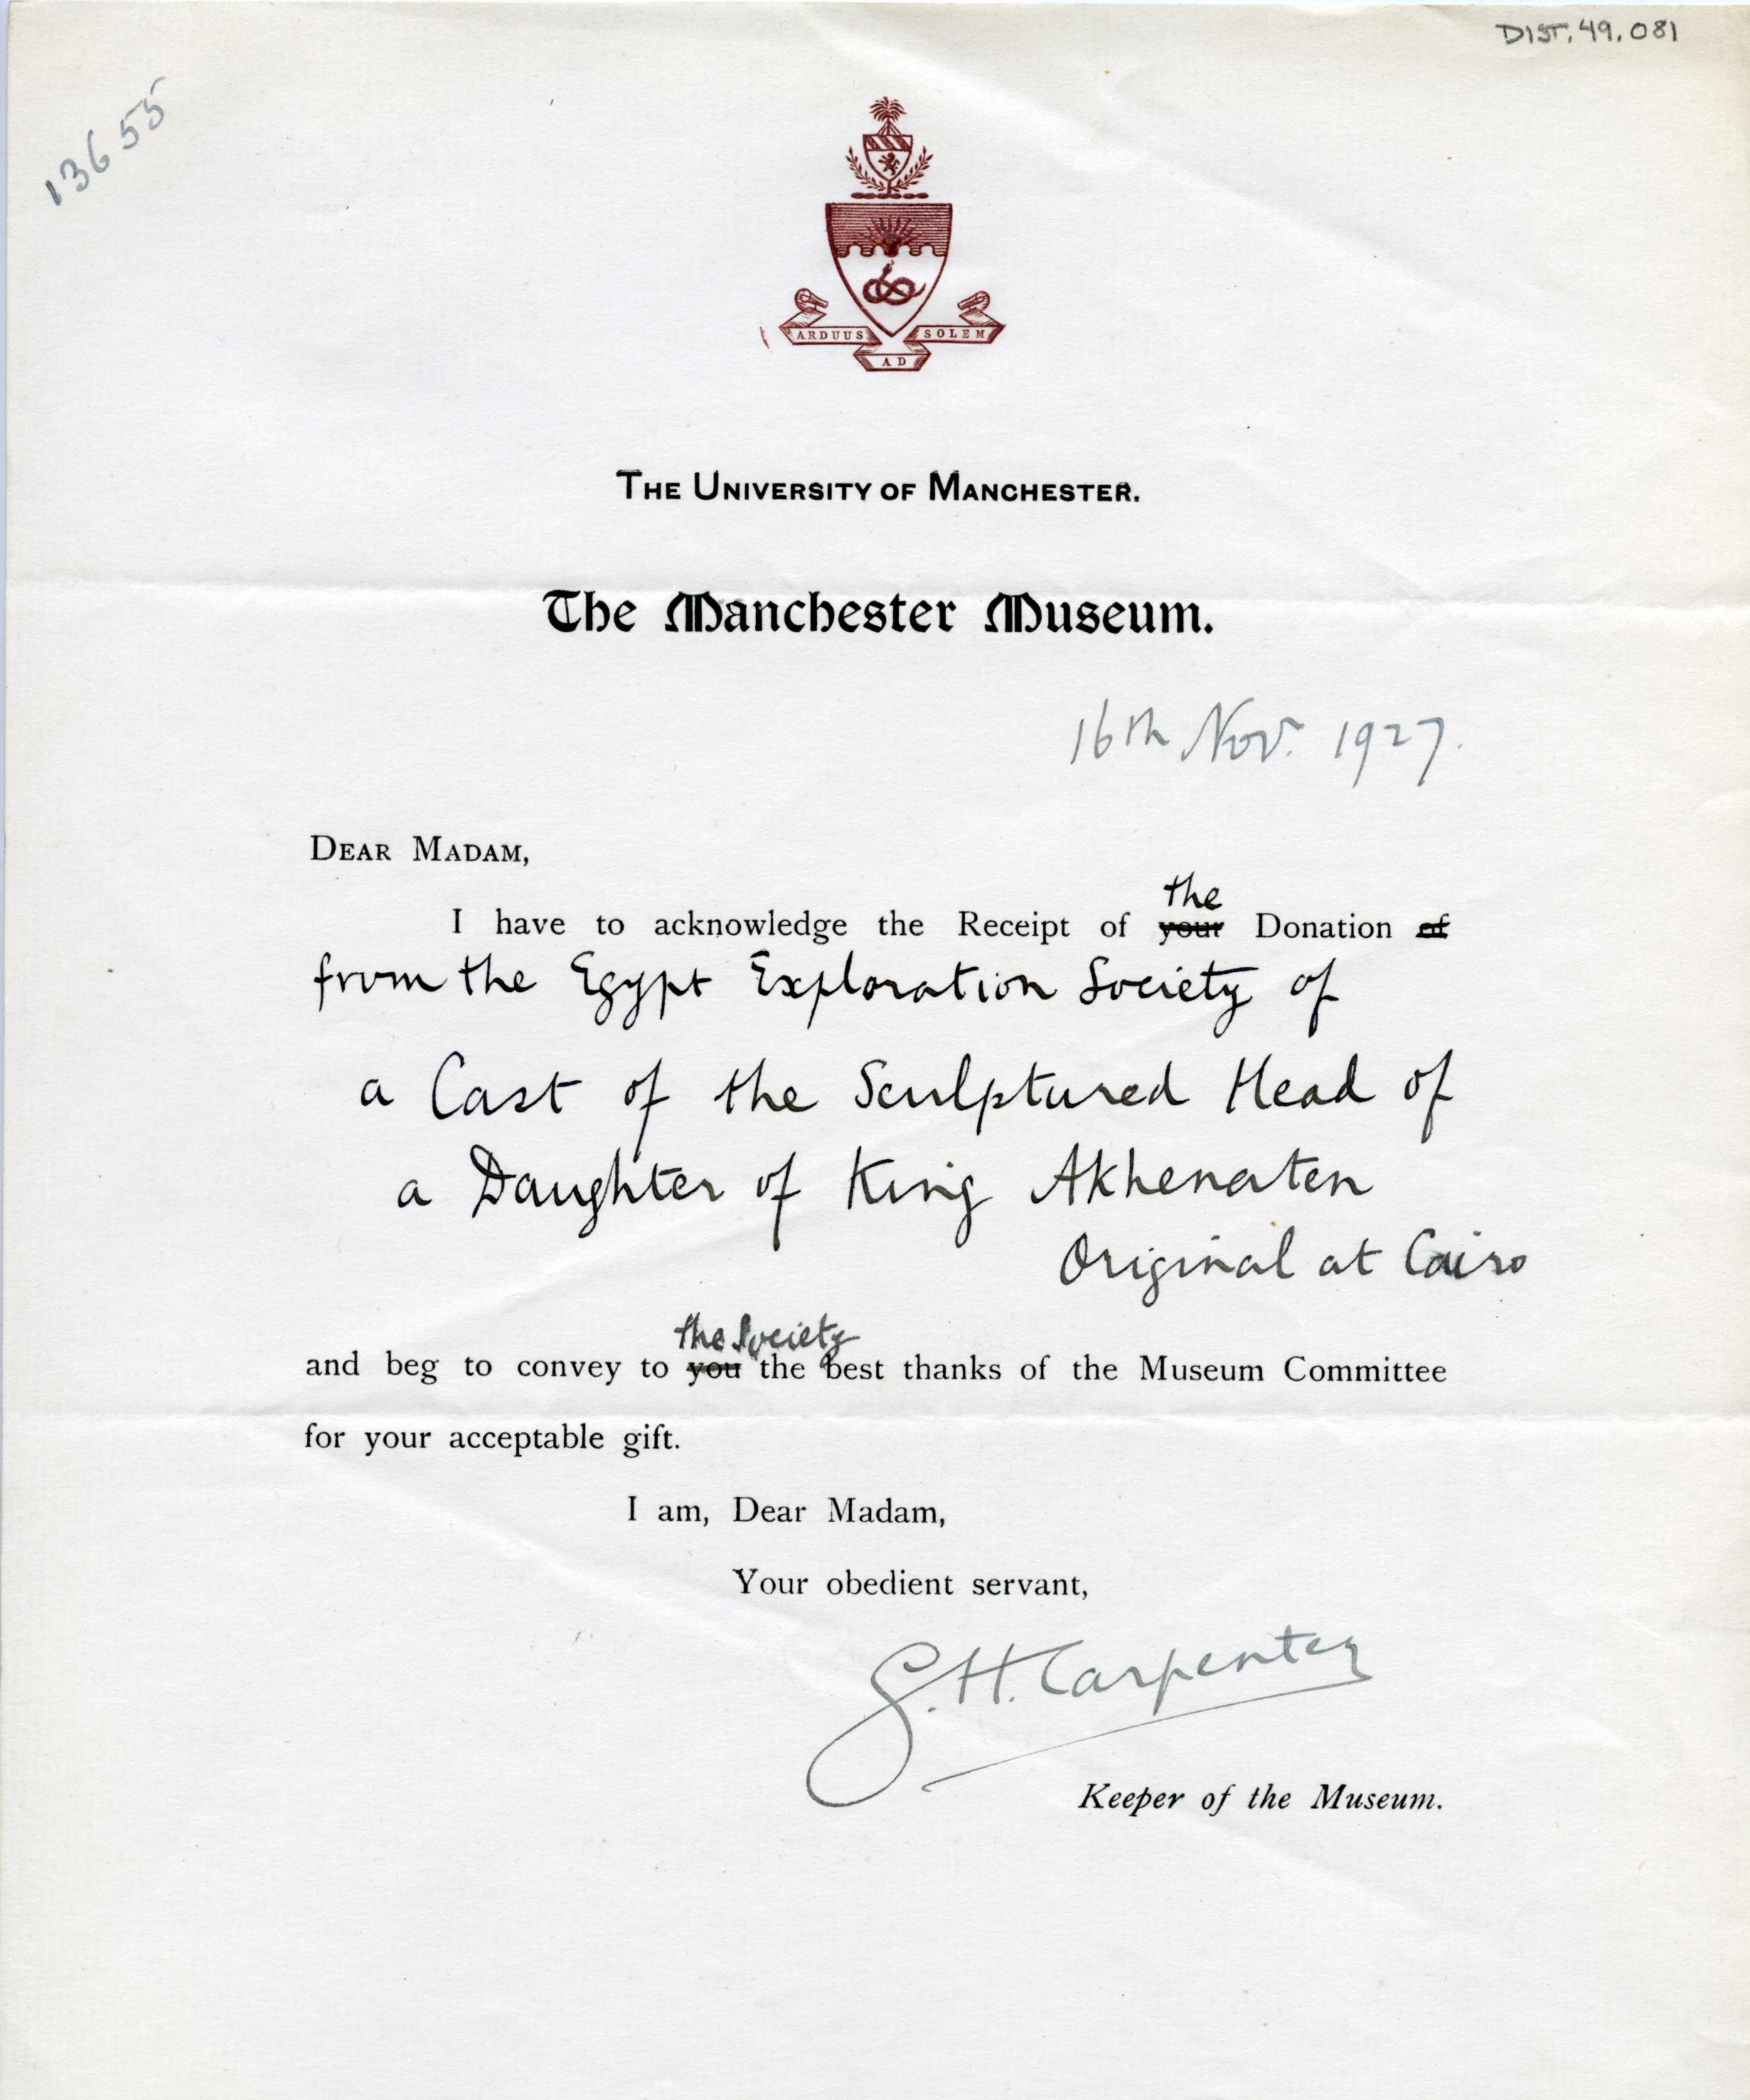 DIST. 49.081
13655
ARDUUS AD SOLEM
THE UNIVERSITY OF MANCHESTER.
The Manchester Museum.
16th Nov. 1927.
DEAR MADAM,
the
I have to acknowledge the Receipt of your Donation of
from the Egypt Exploration Society of
a Cast of the Sculptured Head of
a Daughter of King Akhenaten
Original at Cairo
the Society
and beg to convey to you the best thanks of the Museum Committee
for your acceptable gift.
I am, Dear Madam,
Your obedient servant,
G. H. Carpenter
Keeper of the Museum.